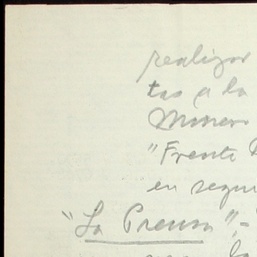 realizar
tas a la
"Frente
en segui
"La Prensa",-